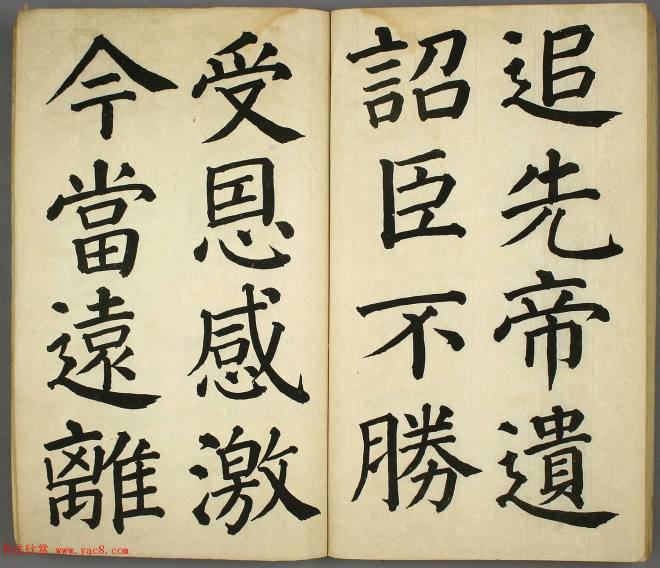 追先帝遺
詔臣不勝
受恩感激
今當遠離
www.yac8.com